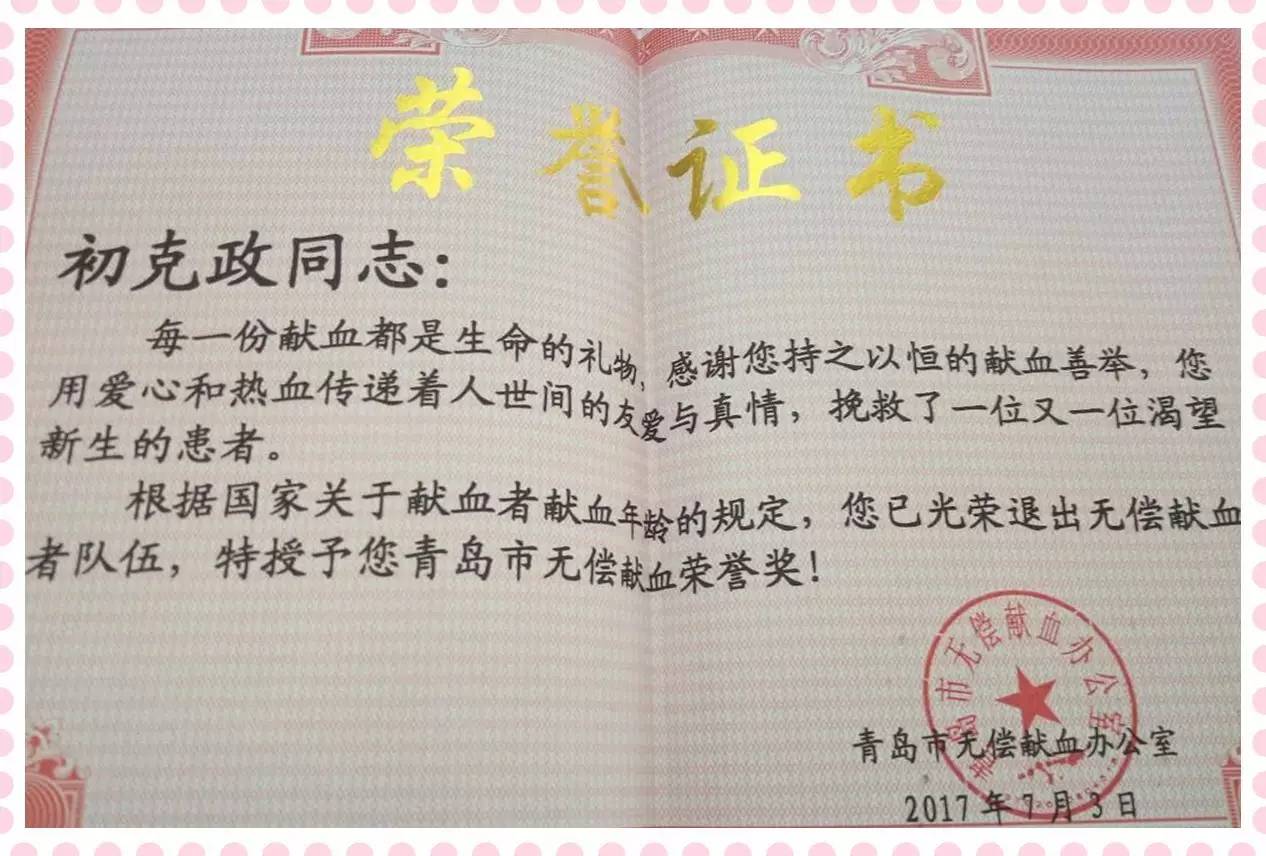 荣誉证书
初克政同志：
每一份献血都是生命的礼物，感谢您持之以恒的献血善举，您
用爱心和热血传递着人世间的友爱与真情，挽救了一位又一位渴望
新生的患者。
根据国家关于献血者献血年龄的规定，您已光荣退出无偿献血
者队伍，特授予您青岛市无偿献血荣誉奖！
青岛市无偿献血办公室
青岛市无偿献血办公室
2017年7月3日